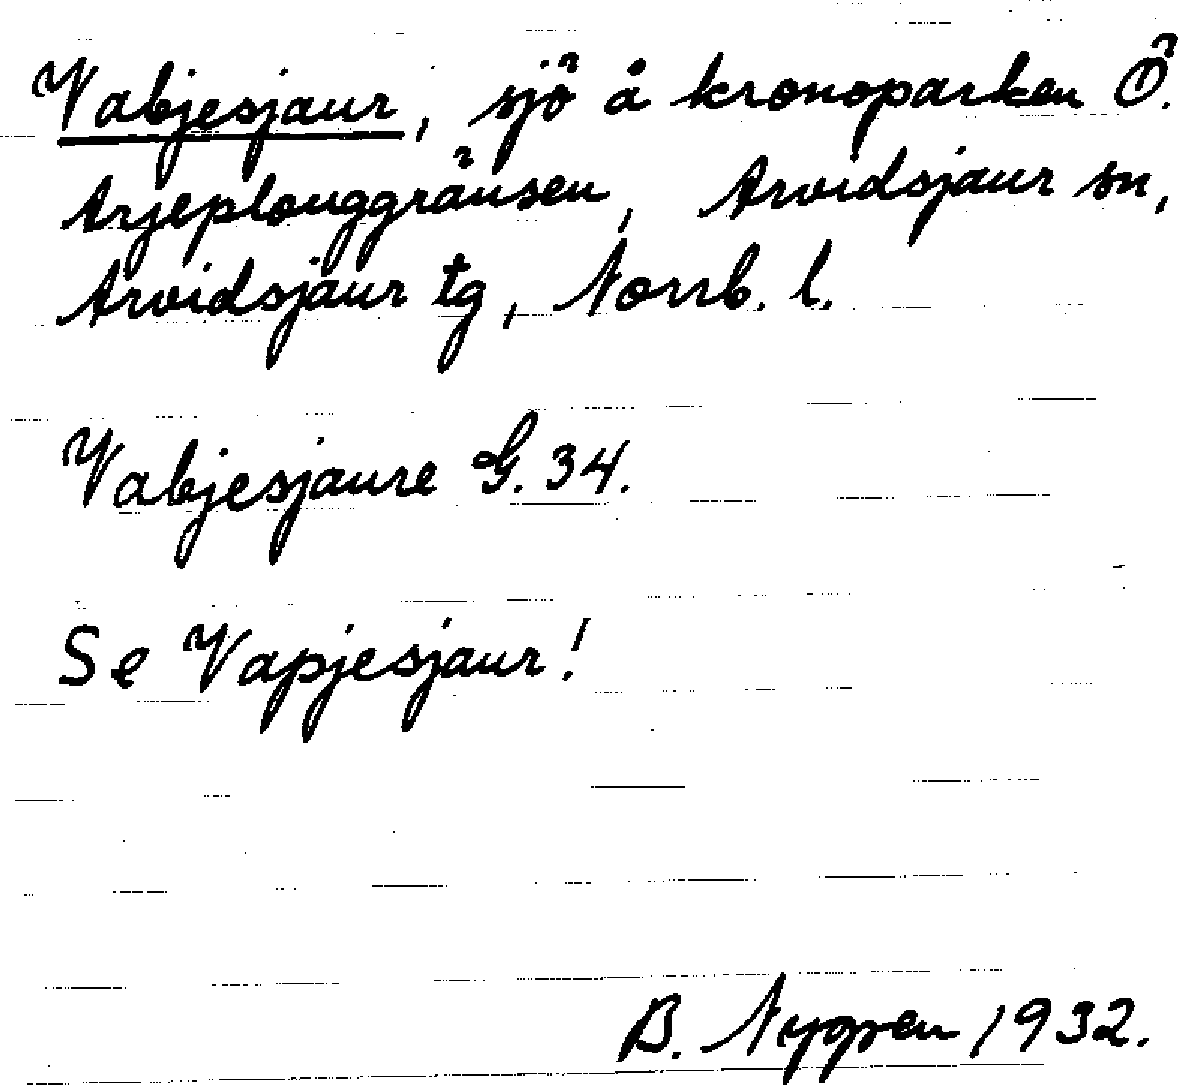 Vabjesjaur, sjö å kronoparken Ö.
Arjeplouggränsen, Arvidsjaur sn,
Arvidsjaur tg, Norrb. l.
Vabjesjaure G. 34.
Se Vapjesjaur!
B. Nygren 1932.